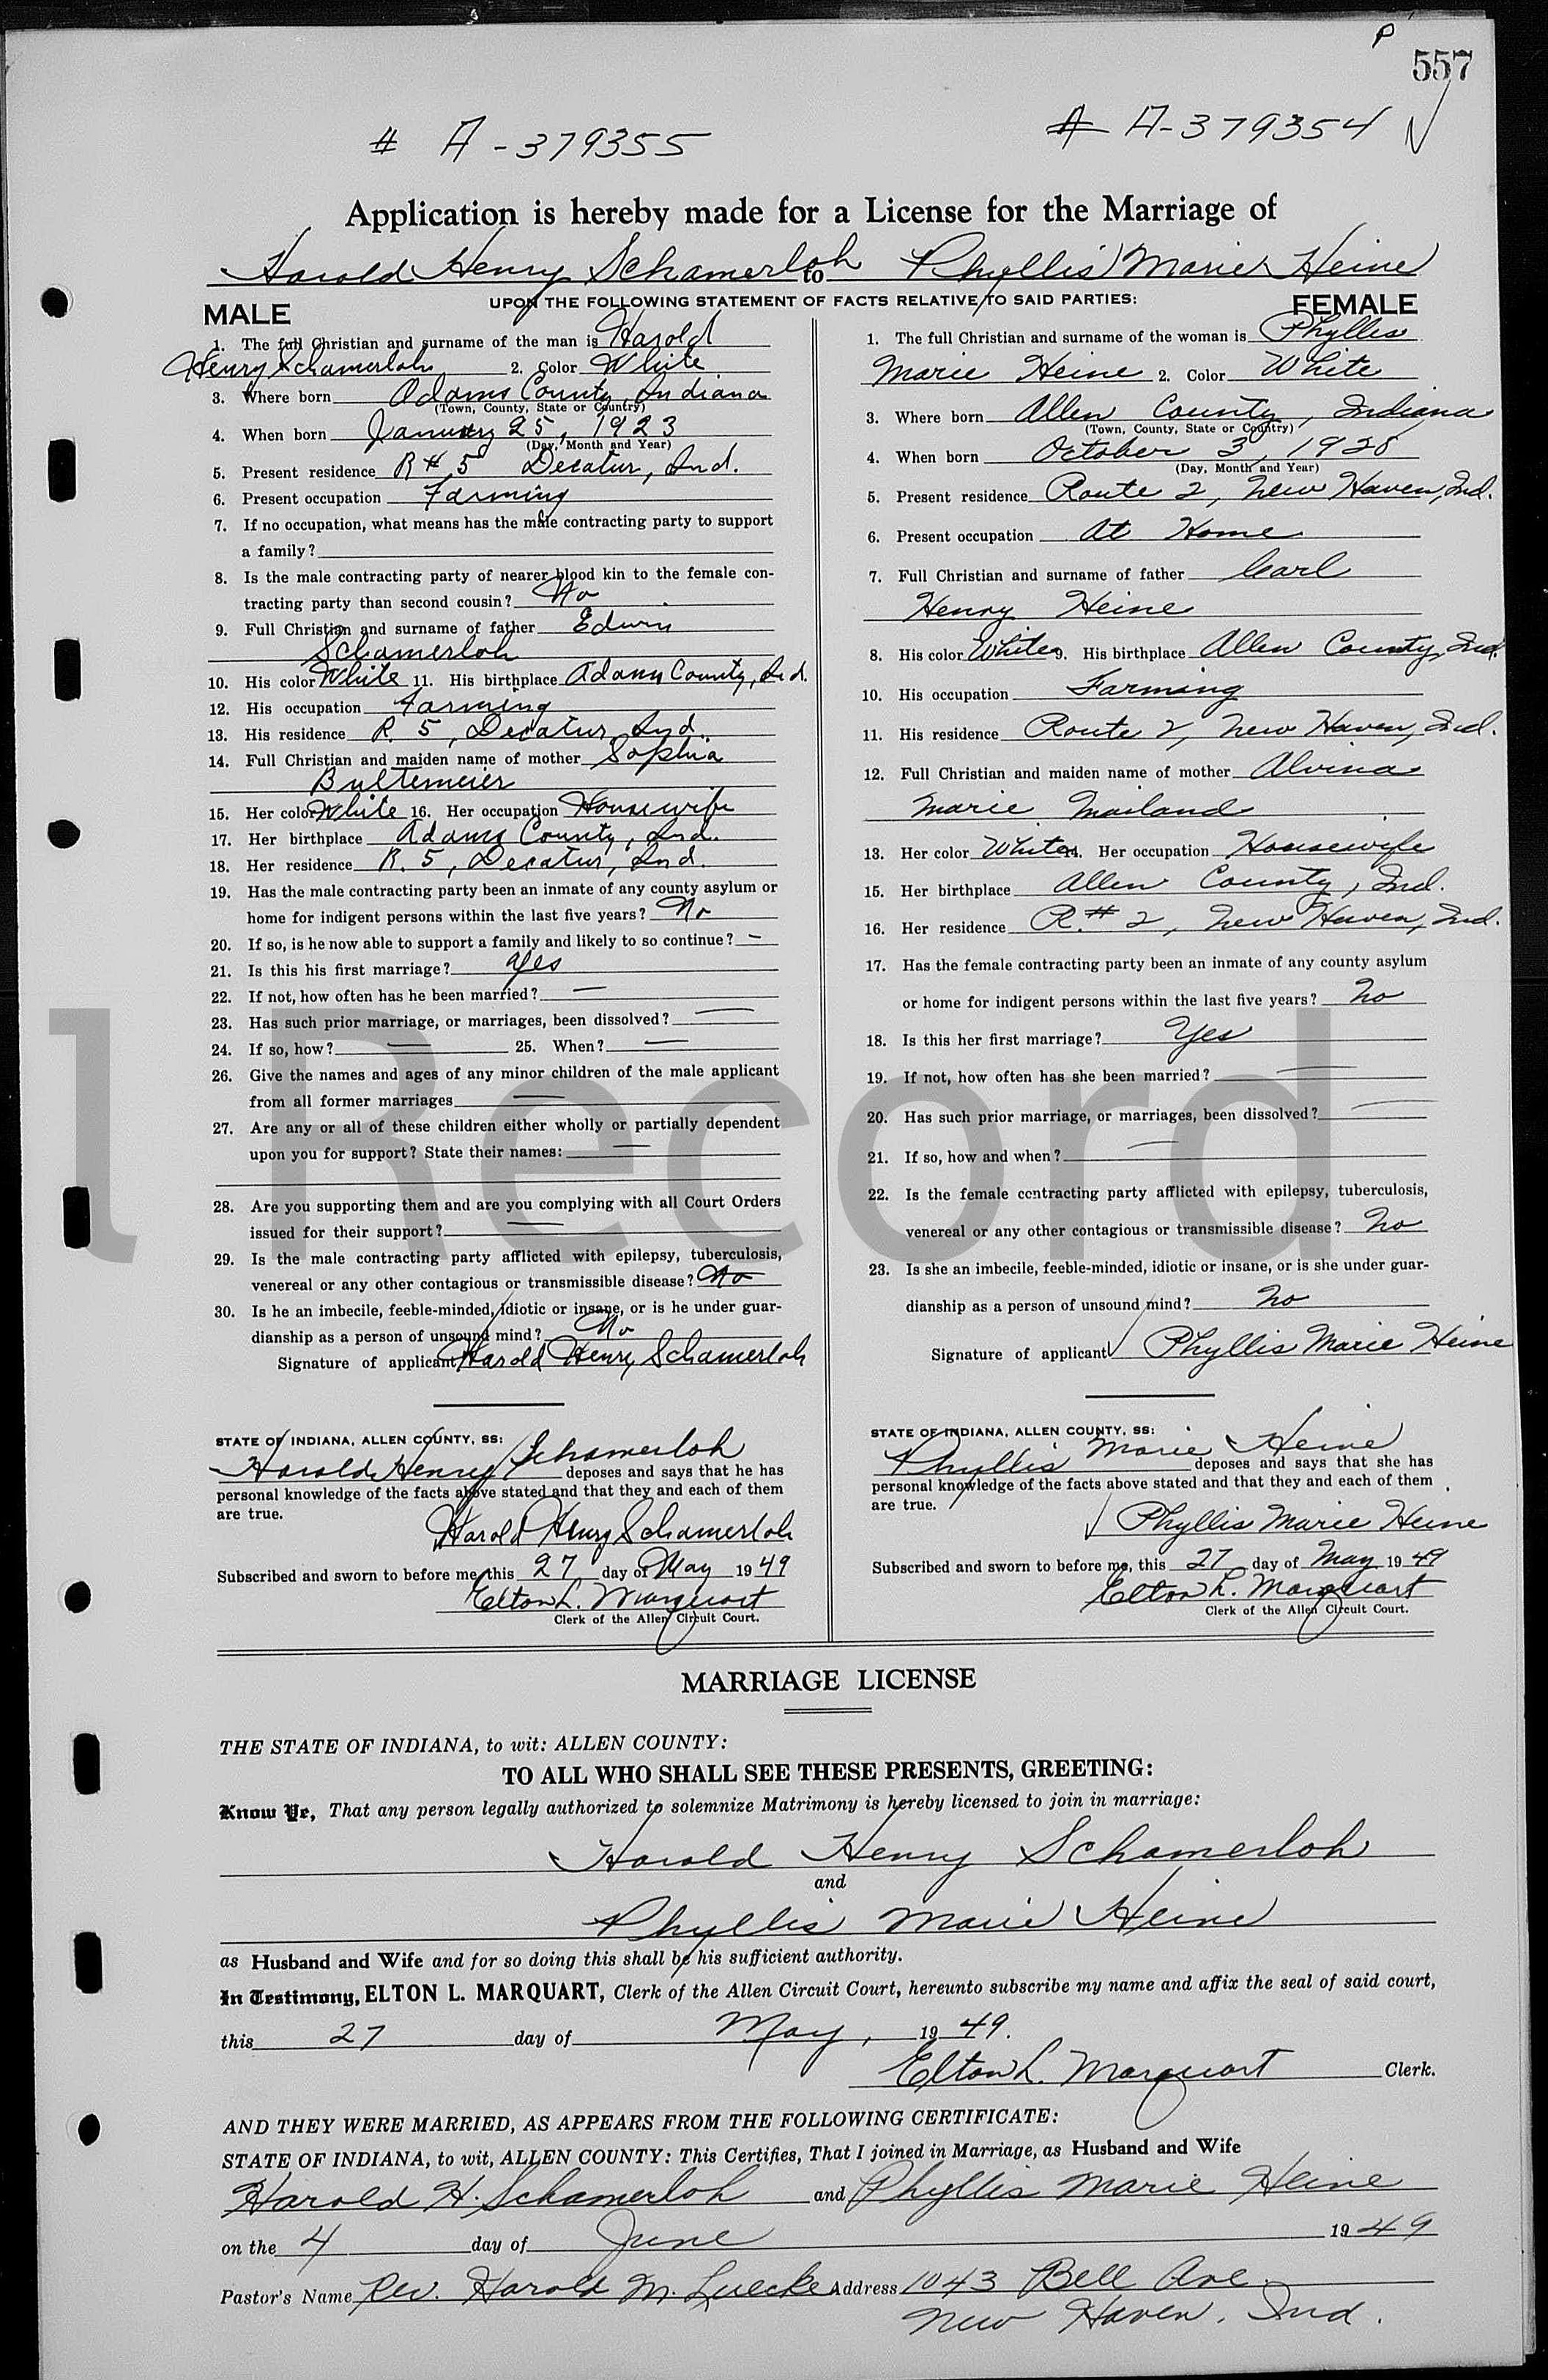 P
557
# A-379355
# A-379354
Application is hereby made for a License for the Marriage of
Harold Henry Schamerloh to Phyllis Marie Heine
UPON THE FOLLOWING STATEMENT OF FACTS RELATIVE TO SAID PARTIES:
MALE
1. The full Christian and surname of the man is Harold
Henry Schamerloh 2. Color White
3. Where born Adams County, Indiana
(Town, County, State or Country)
4. When born January 25, 1923
(Day, Month and Year)
5. Present residence R# 5 Decatur, Ind.
6. Present occupation Farming
7. If no occupation, what means has the male contracting party to support
a family?
8. Is the male contracting party of nearer blood kin to the female con-
tracting party than second cousin? No
9. Full Christian and surname of father Edwin
Schamerloh
10. His color White 11. His birthplace Adams County, Ind.
12. His occupation Farming
13. His residence R. 5, Decatur, Ind.
14. Full Christian and maiden name of mother Sophia
Bultemeier
15. Her color White 16. Her occupation Housewife
17. Her birthplace Adams County, Ind.
18. Her residence R. 5, Decatur, Ind.
19. Has the male contracting party been an inmate of any county asylum or
home for indigent persons within the last five years? No
20. If so, is he now able to support a family and likely to so continue? —
21. Is this his first marriage? Yes
22. If not, how often has he been married? —
23. Has such prior marriage, or marriages, been dissolved? —
24. If so, how? — 25. When? —
26. Give the names and ages of any minor children of the male applicant
from all former marriages —
27. Are any or all of these children either wholly or partially dependent
upon you for support? State their names: —
28. Are you supporting them and are you complying with all Court Orders
issued for their support? —
29. Is the male contracting party afflicted with epilepsy, tuberculosis,
venereal or any other contagious or transmissible disease? No
30. Is he an imbecile, feeble-minded, idiotic or insane, or is he under guar-
dianship as a person of unsound mind? No
Signature of applicant Harold Henry Schamerloh
STATE OF INDIANA, ALLEN COUNTY, SS:
Harold Henry Schamerloh deposes and says that he has
personal knowledge of the facts above stated and that they and each of them
are true.
Harold Henry Schamerloh
Subscribed and sworn to before me, this 27 day of May 1949
Elton L. Marquart
Clerk of the Allen Circuit Court.
FEMALE
1. The full Christian and surname of the woman is Phyllis
Marie Heine 2. Color White
3. Where born Allen County, Indiana
(Town, County, State or Country)
4. When born October 3, 1928
(Day, Month and Year)
5. Present residence Route 2, New Haven, Ind.
6. Present occupation At Home
7. Full Christian and surname of father Carl
Henry Heine
8. His color White 9. His birthplace Allen County, Ind.
10. His occupation Farming
11. His residence Route 2, New Haven, Ind.
12. Full Christian and maiden name of mother Alvina
Marie Mailand
13. Her color White 14. Her occupation Housewife
15. Her birthplace Allen County, Ind.
16. Her residence R.# 2, New Haven, Ind.
17. Has the female contracting party been an inmate of any county asylum
or home for indigent persons within the last five years? No
18. Is this her first marriage? Yes
19. If not, how often has she been married? —
20. Has such prior marriage, or marriages, been dissolved? —
21. If so, how and when? —
22. Is the female contracting party afflicted with epilepsy, tuberculosis,
venereal or any other contagious or transmissible disease? No
23. Is she an imbecile, feeble-minded, idiotic or insane, or is she under guar-
dianship as a person of unsound mind? No
Signature of applicant Phyllis Marie Heine
STATE OF INDIANA, ALLEN COUNTY, SS:
Phyllis Marie Heine deposes and says that she has
personal knowledge of the facts above stated and that they and each of them
are true.
Phyllis Marie Heine
Subscribed and sworn to before me, this 27 day of May 1949
Elton L. Marquart
Clerk of the Allen Circuit Court.
l Record
MARRIAGE LICENSE
THE STATE OF INDIANA, to wit: ALLEN COUNTY:
TO ALL WHO SHALL SEE THESE PRESENTS, GREETING:
Know Ye, That any person legally authorized to solemnize Matrimony is hereby licensed to join in marriage:
Harold Henry Schamerloh
and
Phyllis Marie Heine
as Husband and Wife and for so doing this shall be his sufficient authority.
In Testimony, ELTON L. MARQUART, Clerk of the Allen Circuit Court, hereunto subscribe my name and affix the seal of said court,
this 27 day of May, 1949.
Elton L. Marquart Clerk.
AND THEY WERE MARRIED, AS APPEARS FROM THE FOLLOWING CERTIFICATE:
STATE OF INDIANA, to wit, ALLEN COUNTY: This Certifies, That I joined in Marriage, as Husband and Wife
Harold H. Schamerloh and Phyllis Marie Heine
on the 4 day of June 1949
Pastor's Name Rev. Harold M. Luecke Address 1043 Bell Ave.
New Haven, Ind.